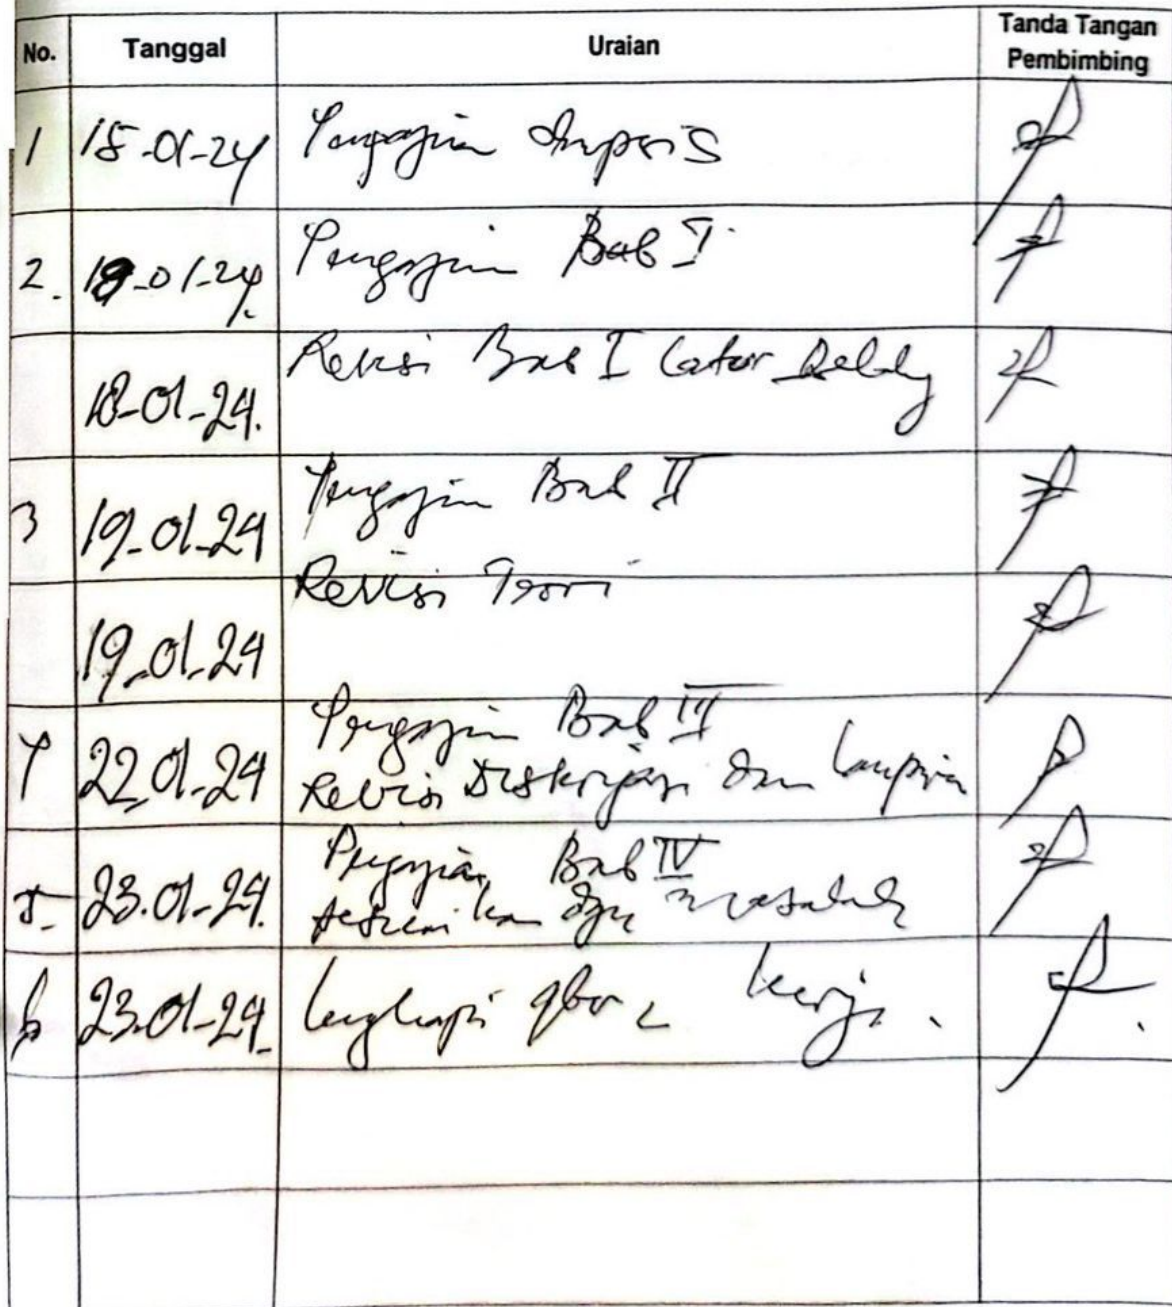 No. Tanggal Uraian Tanda Tangan
Pembimbing
1 15-01-24 Pengajuan
2. 18-01-24. Pengajuan Bab I
18-01-24. Revisi Bab I Latar Belakg
3 19-01-24 Pengajuan Bab II
19-01-24 Revisi Teori
4 22-01-24 Pengajuan Bab III
Revisi dan lampiran
5. 23.01-24. Pengajuan Bab IV
dgn masalah
6 23.01-24. lengkapi kerja.